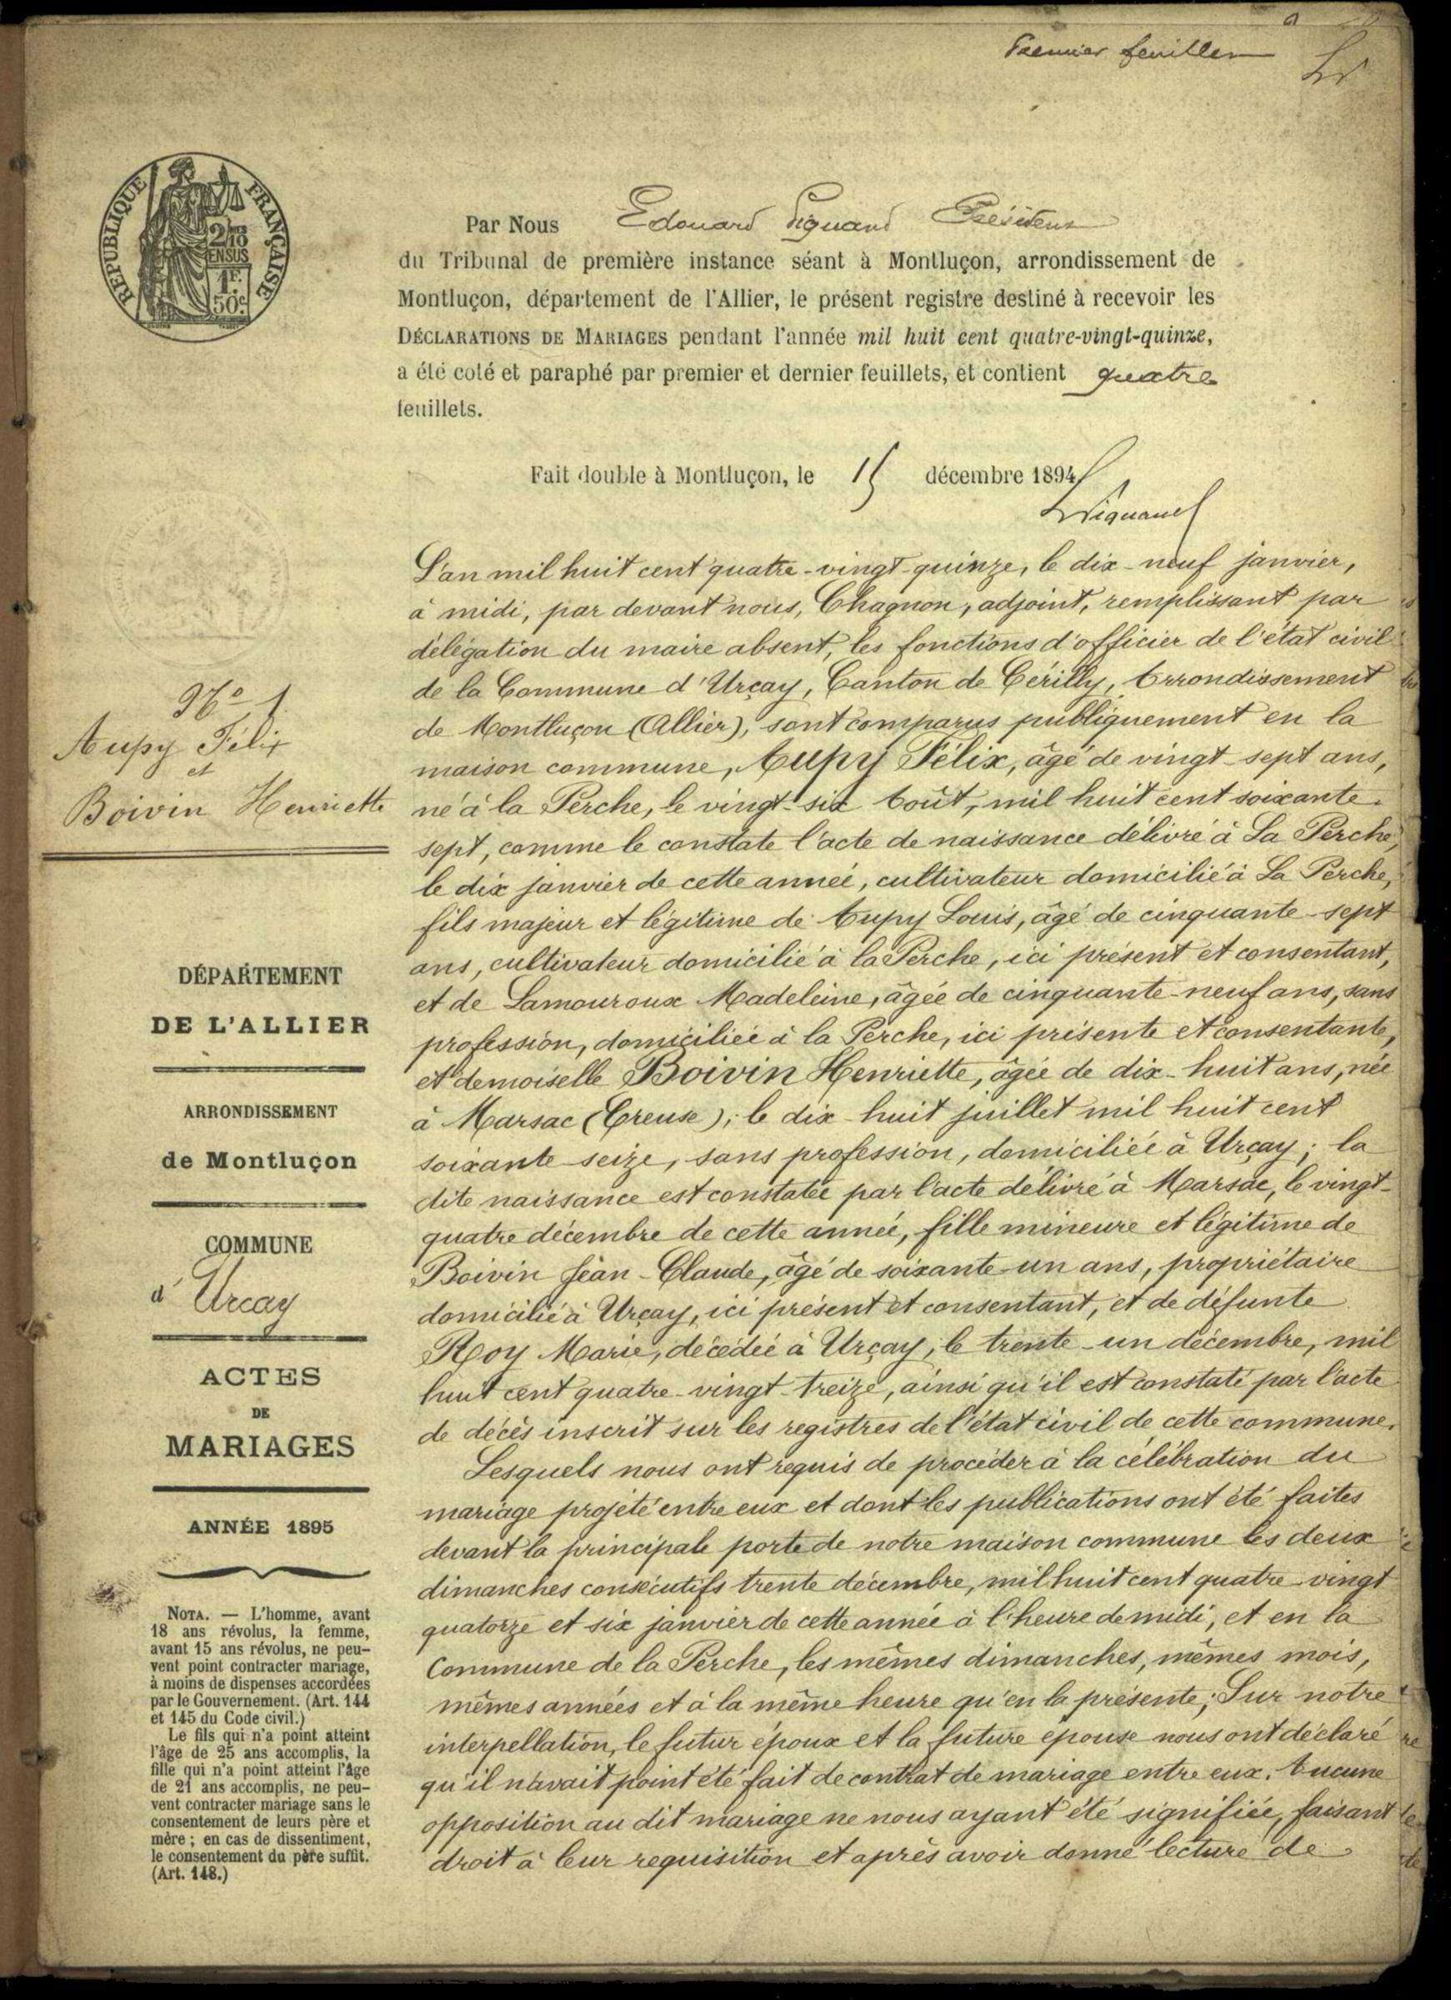 Premier feuillet
RÉPUBLIQUE FRANÇAISE
2/10
EN SUS
1F.
50c.
Par Nous Edouard Piquand Président
du Tribunal de première instance séant à Montluçon, arrondissement de
Montluçon, département de l'Allier, le présent registre destiné à recevoir les
DÉCLARATIONS DE MARIAGES pendant l'année mil huit cent quatre-vingt-quinze,
a été coté et paraphé par premier et dernier feuillets, et contient quatre
feuillets.
Fait double à Montluçon, le 15 décembre 1894
Piquand
N° 1
Aupy Félix
et
Boivin Henriette
DÉPARTEMENT
DE L'ALLIER
ARRONDISSEMENT
de Montluçon
COMMUNE
d' Urçay
ACTES
DE
MARIAGES
ANNÉE 1895
NOTA. — L'homme, avant
18 ans révolus, la femme,
avant 15 ans révolus, ne peu-
vent point contracter mariage,
à moins de dispenses accordées
par le Gouvernement. (Art. 144
et 145 du Code civil.)
Le fils qui n'a point atteint
l'âge de 25 ans accomplis, la
fille qui n'a point atteint l'âge
de 21 ans accomplis, ne peu-
vent contracter mariage sans le
consentement de leurs père et
mère ; en cas de dissentiment,
le consentement du père suffit.
(Art. 148.)
L'an mil huit cent quatre-vingt-quinze, le dix-neuf janvier,
à midi, par devant nous, Chagnon, adjoint, remplissant par
délégation du maire absent, les fonctions d'officier de l'état civil
de la Commune d'Urçay, Canton de Cérilly, Arrondissement
de Montluçon (Allier), sont comparus publiquement en la
maison commune, Aupy Félix, âgé de vingt-sept ans,
né à la Perche, le vingt-six Août, mil huit cent soixante-
sept, comme le constate l'acte de naissance délivré à La Perche,
le dix janvier de cette année, cultivateur domicilié à La Perche,
fils majeur et légitime de Aupy Louis, âgé de cinquante-sept
ans, cultivateur domicilié à la Perche, ici présent et consentant,
et de Lamouroux Madeleine, âgée de cinquante-neuf ans, sans
profession, domiciliée à la Perche, ici présente et consentante,
et demoiselle Boivin Henriette, âgée de dix-huit ans, née
à Marsac (Creuse), le dix-huit juillet mil huit cent
soixante-seize, sans profession, domiciliée à Urçay ; la
dite naissance est constatée par l'acte délivré à Marsac, le vingt-
quatre décembre de cette année, fille mineure et légitime de
Boivin Jean-Claude, âgé de soixante-un ans, propriétaire
domicilié à Urçay, ici présent et consentant, et de défunte
Roy Marie, décédée à Urçay, le trente-un décembre, mil
huit cent quatre-vingt-treize, ainsi qu'il est constaté par l'acte
de décès inscrit sur les registres de l'état civil de cette commune.
Lesquels nous ont requis de procéder à la célébration du
mariage projeté entre eux et dont les publications ont été faites
devant la principale porte de notre maison commune les deux
dimanches consécutifs trente décembre, mil huit cent quatre-vingt
quatorze et six janvier de cette année à l'heure de midi, et en la
Commune de la Perche, les mêmes dimanches, mêmes mois,
mêmes années et à la même heure qu'en la présente ; Sur notre
interpellation, le futur époux et la future épouse nous ont déclaré
qu'il n'avait point été fait de contrat de mariage entre eux. Aucune
opposition au dit mariage ne nous ayant été signifiée, faisant
droit à leur requisition et après avoir donné lecture de